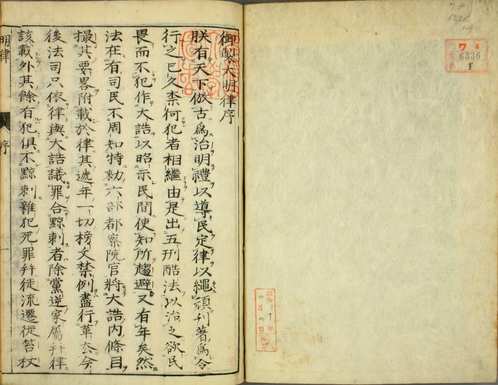 御製大明律序
朕有天下倣古為治明禮以導民定律以繩頑刊著為令
行之已久柰何犯者相繼由是出五刑酷法以治之欲民
畏而不犯作大誥以昭示民間使知所趨避又有年矣然
法在有司民不周知特勅六部都察院官將大誥内條目
撮其要畧附載於律其逓年一切榜文禁例盡行革去今
後法司只依律與大誥議罪合黥刺者除黨逆家屬幷律
該載外其餘有犯俱不黥刺雜犯死罪幷徒流遷徙笞杖
明律 序
6336
1